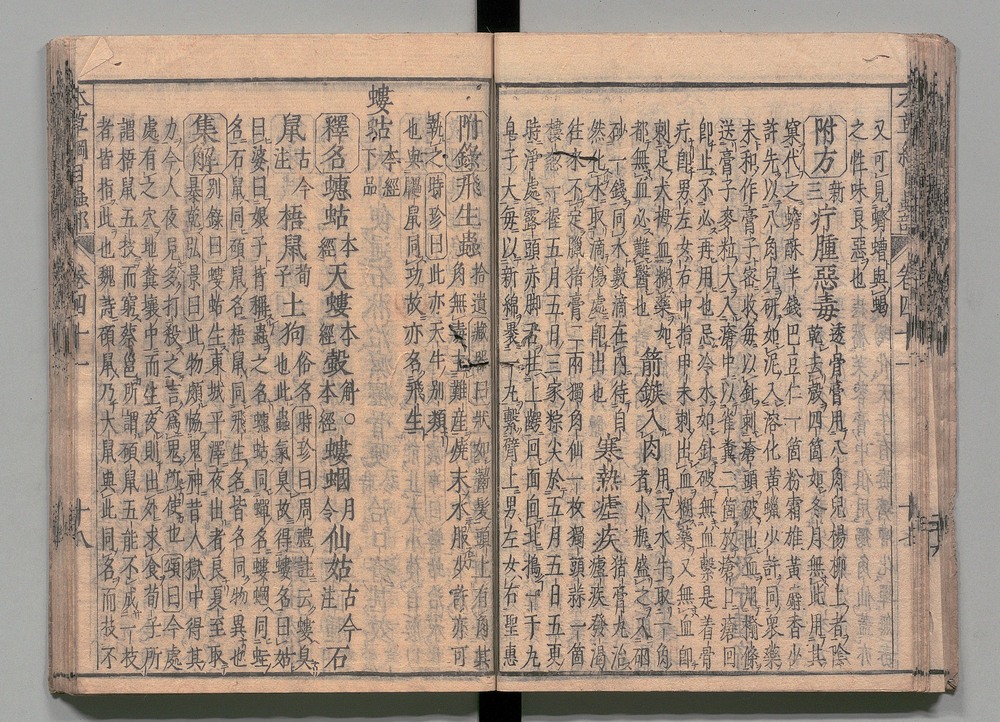 又可見蠐螬與蝎
之性味良惡也
附方 新三 疔腫惡毒 透骨膏用八角兒楊柳上者陰
乾去殼四箇如冬月無此用其
窠代之蟾酥半錢巴豆仁一箇粉霜雄黃麝香少
許先以八角兒研如泥入溶化黃蠟少許同衆藥
末和作膏子密收每以針刺瘡頭破出血用榆條
送膏子麥粒大入瘡中以雀糞二箇放瘡口瘡回
即止不必再用也忌冷水如針破無血繫是着骨
疔即男左女右中指甲末刺出血糊藥又無血即
刺足大拇血糊藥如
都無血必難醫也
箭鏃入肉 用天水牛取一角
者小瓶盛之入硇
砂一錢同水數滴在內待自
然化水取滴傷處即出也
寒熱瘧疾 猪膏丸治
瘧疾發渴
往來不定臘猪膏二兩獨角仙一枚獨頭蒜一箇
樓葱一握五月三家粽尖於五月五日五更
時淨處露頭赤脚舌拄上齶回面向北搗一千丸
皂子大每以新綿裹一丸繫臂上男左女右聖惠
附錄飛生蟲 拾遺藏器曰狀如齧髮頭上有角其
角無毒主難産燒末水服少許亦可
執之時珍曰此亦天牛別類
也與鼯鼠同功故亦名飛生
螻蛄 本經下品
釋名 蟪蛄本經 天螻本經 㲉本經 螻蟈月令 仙姑古今注 石
鼠古今注 梧鼠荀子 土狗俗名時珍曰周禮註云螻臭
也此蟲氣臭故得螻名曰姑
曰婆曰娘子皆稱蟲之名蟪蛄同蟬名螻蟈同蛙
名石鼠同碩鼠名梧鼠同飛生名皆名同物異也
集解 別錄曰螻蛄生東城平澤夜出者良夏至取
暴乾弘景曰此物頗協鬼神昔人獄中得其
力今人夜見多打殺之言爲鬼所使也頌曰今處
處有之穴地糞壤中而生夜則出外求食荀子所
謂梧鼠五技而窮蔡邕所謂碩鼠五能不成一技
者皆指此也魏詩碩鼠乃大鼠與此同名而技不